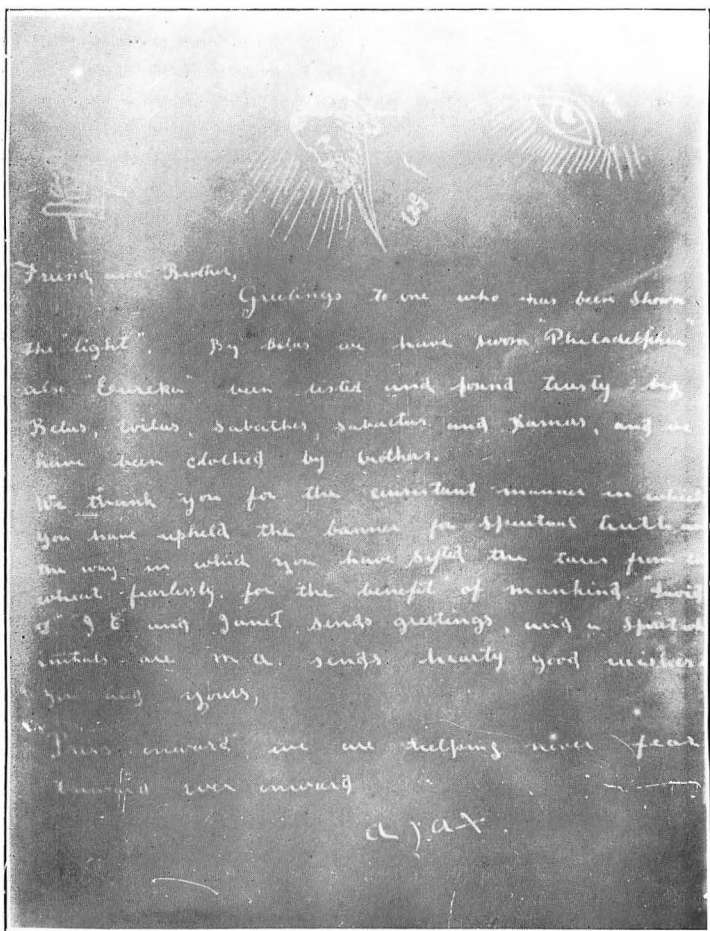 Friend and Brother,
Greetings to one who has been shown
the "light". By Belus we have sworn "Philadelphia"
also "Eureka" been tested and found trusty by
Belus, , Sabathes, Sabactus and Ramas, and we
have been clothed by brothers.
We thank you for the consistant manner in which
you have upheld the banner for Spiritual truth
the way in which you have sifted the tares from
wheat fearlessly for the benefit of mankind.
of J E and Janet sends greetings, and a
initials are M A. sends hearty good wishes
you and yours,
"Press onward" we are helping never fear
Onward ever onward
Ajax.